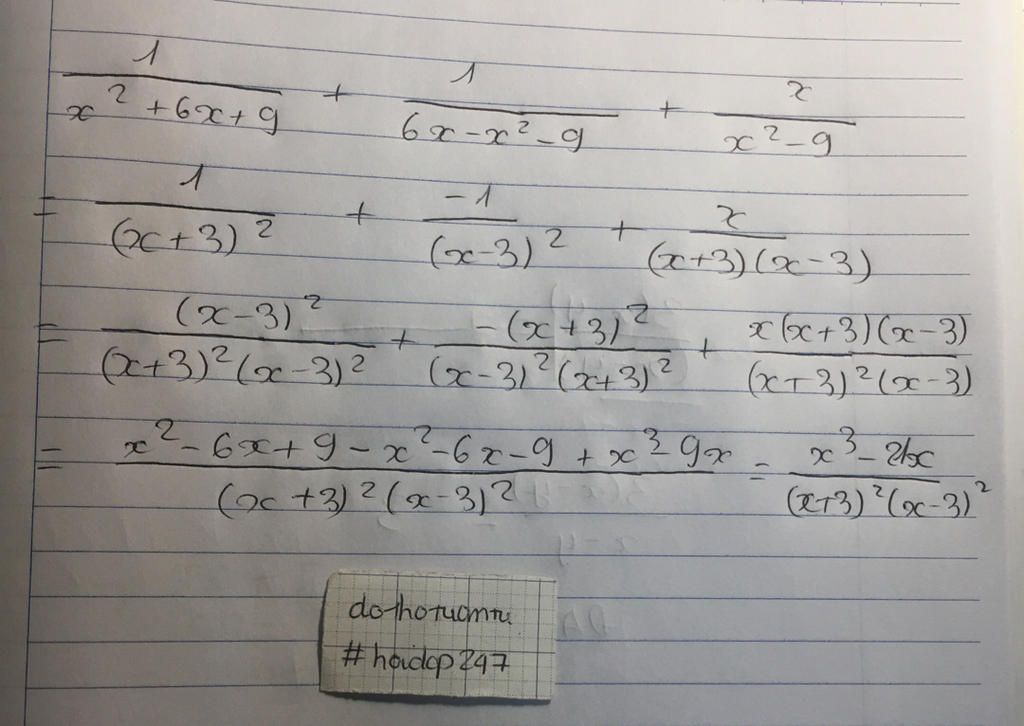 1/(x² + 6x + 9) + 1/(6x - x² - 9) + x/(x² - 9)
= 1/(x + 3)² + -1/(x - 3)² + x/((x+3)(x-3))
= (x - 3)²/((x+3)²(x-3)²) + -(x + 3)²/((x-3)²(x+3)²) + x(x+3)(x-3)/((x+3)²(x-3))
= (x² - 6x + 9 - x² - 6x - 9 + x³ - 9x)/((x + 3)²(x - 3)²) = (x³ - 21x)/((x+3)²(x-3)²)
#hoidap247